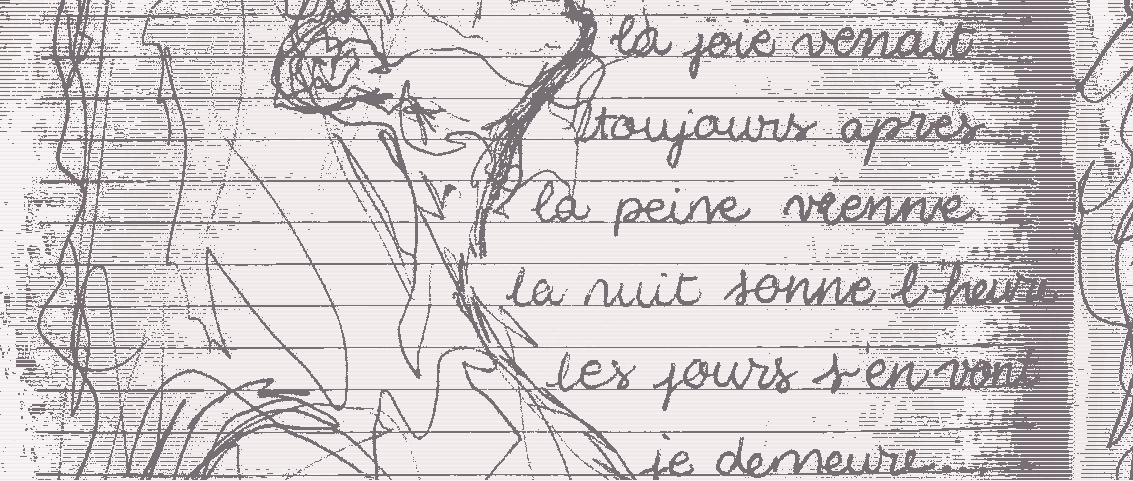 la joie venait
toujours après
la peine vienne
la nuit sonne l'heure
les jours s'en vont
je demeure......